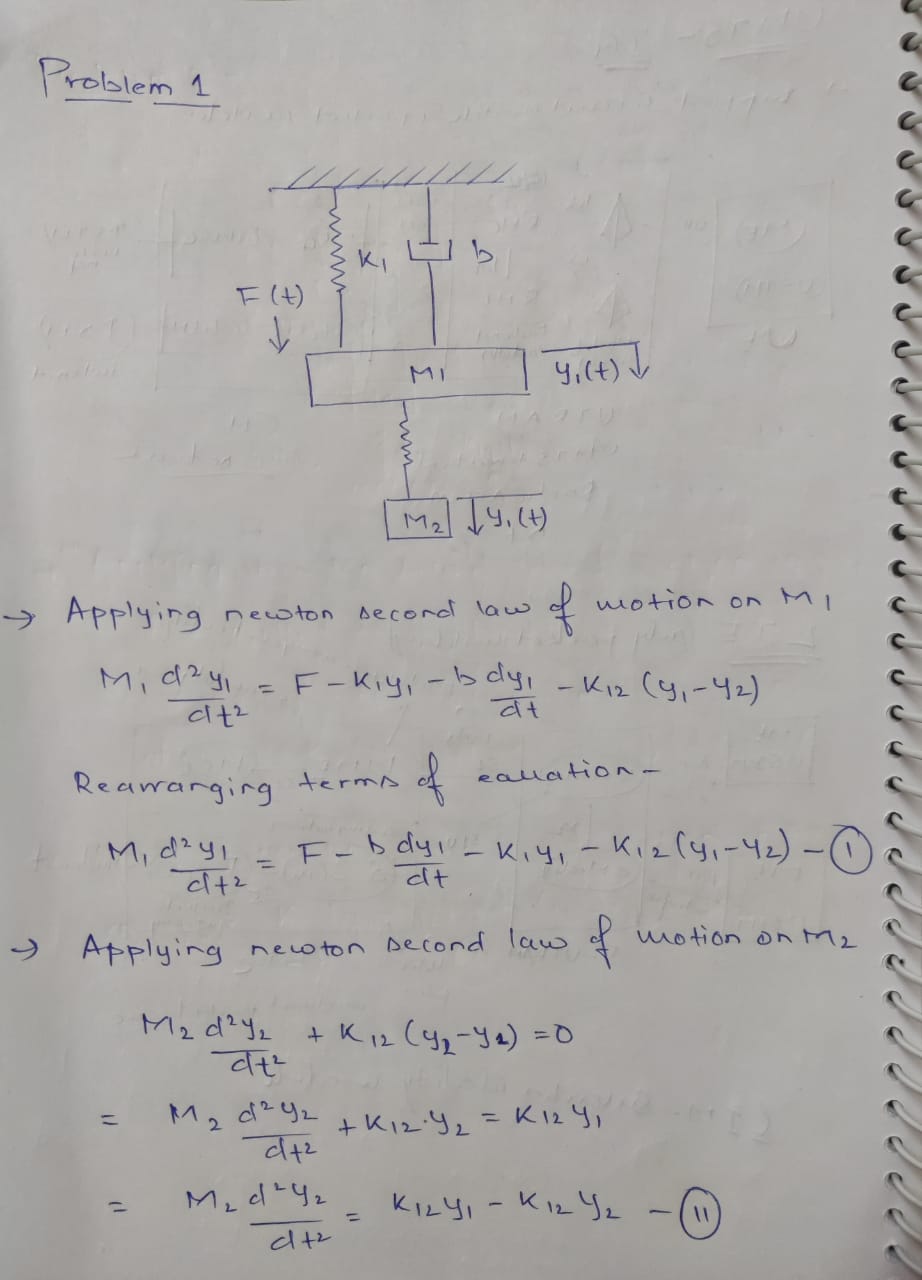 Problem 1
K1 b
F(t)
M1 y1(t)
M2 y1(t)
→ Applying newton second law of motion on M1
M1 d²y1/dt² = F - K1y1 - b dy1/dt - K12 (y1-y2)
Rearranging terms of equation-
M1 d²y1/dt² = F - b dy1/dt - K1y1 - K12 (y1-y2) - ①
→ Applying newton second law of motion on M2
M2 d²y2/dt² + K12 (y2-y1) = 0
= M2 d²y2/dt² + K12·y2 = K12 y1
= M2 d²y2/dt² = K12y1 - K12 y2 - ⑪